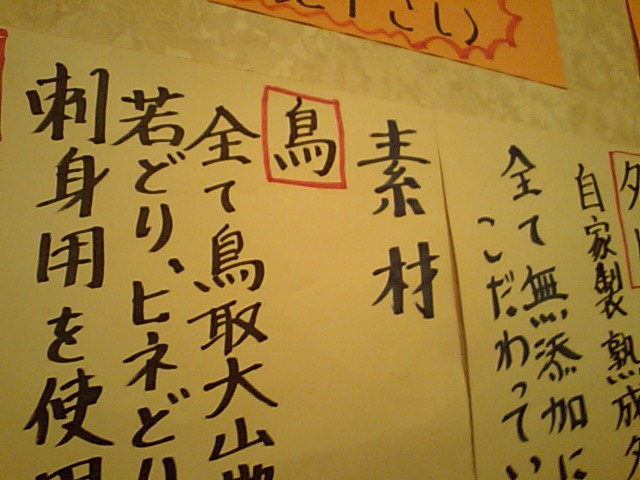 下さい
素材
鳥
全て鳥取大山
若どり、ヒネどり
刺身用を使用
タ
自家製熟成タ
全て無添加に
こだわってい